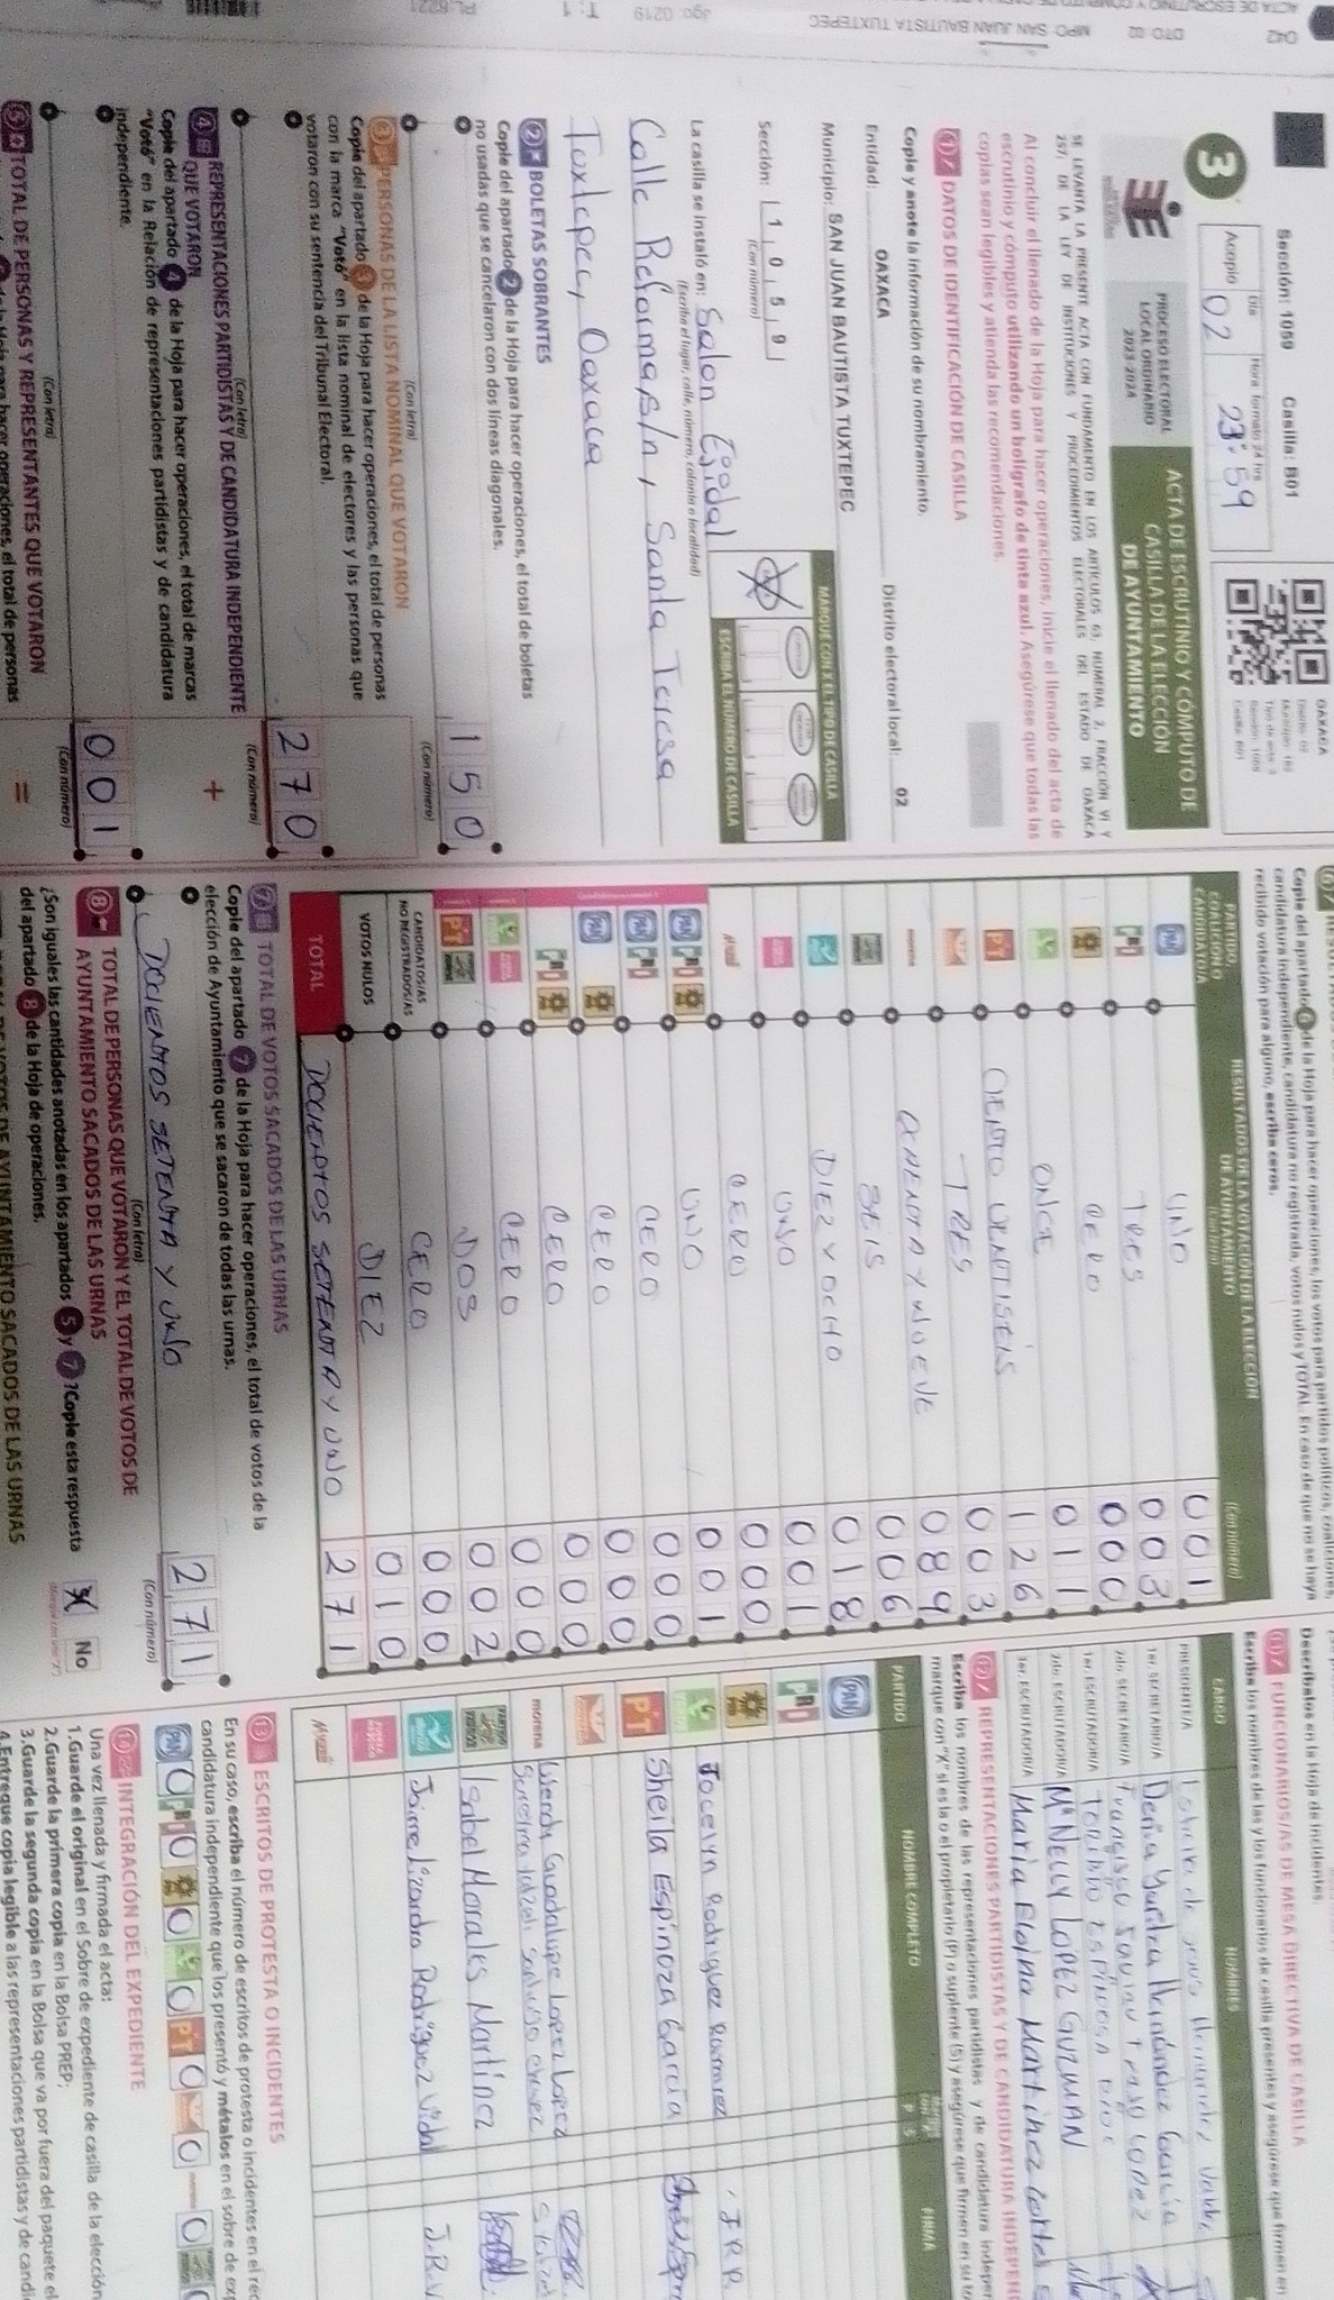 042
DTO: 02
MPO: SAN JUAN BAUTISTA TUXTEPEC
ago. 0219
T: 1
PL: 6221
Sección: 1059
Casilla: B01
OAXACA
3
Acopio
Día
Hora formato 24 hrs
02
23:59
PROCESO ELECTORAL
LOCAL ORDINARIO
2023-2024
ACTA DE ESCRUTINIO Y CÓMPUTO DE
CASILLA DE LA ELECCIÓN
DE AYUNTAMIENTO
SE LEVANTA LA PRESENTE ACTA CON FUNDAMENTO EN LOS ARTÍCULOS 63, NUMERAL 2, FRACCIÓN VI Y
257, DE LA LEY DE INSTITUCIONES Y PROCEDIMIENTOS ELECTORALES DEL ESTADO DE OAXACA
Al concluir el llenado de la Hoja para hacer operaciones, inicie el llenado del acta de
escrutinio y cómputo utilizando un bolígrafo de tinta azul. Asegúrese que todas las
copias sean legibles y atienda las recomendaciones.
1 DATOS DE IDENTIFICACIÓN DE CASILLA
Copie y anote la información de su nombramiento.
Entidad: OAXACA
Distrito electoral local: 02
Municipio: SAN JUAN BAUTISTA TUXTEPEC
Sección: 1 0 5 9
(Con número)
MARQUE CON X EL TIPO DE CASILLA
ESCRIBA EL NÚMERO DE CASILLA
La casilla se instaló en: Salon Ejidal
(Escriba el lugar, calle, número, colonia o localidad)
Calle Reforma s/n, Santa Teresa
Tuxtepec, Oaxaca
2 BOLETAS SOBRANTES
Copie del apartado 2 de la Hoja para hacer operaciones, el total de boletas
no usadas que se cancelaron con dos líneas diagonales.
150
(Con letra)
(Con número)
3 PERSONAS DE LA LISTA NOMINAL QUE VOTARON
Copie del apartado 3 de la Hoja para hacer operaciones, el total de personas
con la marca "Votó" en la lista nominal de electores y las personas que
votaron con su sentencia del Tribunal Electoral.
270
(Con letra)
(Con número)
4 REPRESENTACIONES PARTIDISTAS Y DE CANDIDATURA INDEPENDIENTE
QUE VOTARON
+
Copie del apartado 4 de la Hoja para hacer operaciones, el total de marcas
"Votó" en la Relación de representaciones partidistas y de candidatura
independiente.
001
(Con letra)
(Con número)
5 TOTAL DE PERSONAS Y REPRESENTANTES QUE VOTARON
=
Copie del apartado 6 de la Hoja para hacer operaciones, los votos para partidos políticos, coaliciones,
candidatura independiente, candidatura no registrada, votos nulos y TOTAL. En caso de que no se haya
recibido votación para alguno, escriba ceros.
PARTIDO,
COALICIÓN O
CANDIDATO/A
RESULTADOS DE LA VOTACIÓN DE LA ELECCIÓN
DE AYUNTAMIENTO
(Con letra)
(Con número)
PAN UNO 001
PRI TRES 003
CERO 000
ONCE 011
PT CIENTO VENTISEIS 126
TRES 003
morena OCHENTA Y NUEVE 089
SEIS 006
DIEZ Y OCHO 018
UNO 001
CERO 000
PAN PRI UNO 001
PAN PRI CERO 000
PAN CERO 000
PRI CERO 000
CERO 000
PT DOS 002
CANDIDATOS/AS
NO REGISTRADOS/AS CERO 000
VOTOS NULOS DIEZ 010
TOTAL DOCIENTOS SETENTA Y UNO 271
7 TOTAL DE VOTOS SACADOS DE LAS URNAS
Copie del apartado 7 de la Hoja para hacer operaciones, el total de votos de la
elección de Ayuntamiento que se sacaron de todas las urnas.
DOCIENTOS SETENTA Y UNO 271
(Con letra)
(Con número)
8 TOTAL DE PERSONAS QUE VOTARON Y EL TOTAL DE VOTOS DE
AYUNTAMIENTO SACADOS DE LAS URNAS
¿Son iguales las cantidades anotadas en los apartados 5 y 7? Copie esta respuesta
del apartado 8 de la Hoja de operaciones.
X No
VOTOS DE AYUNTAMIENTO SACADOS DE LAS URNAS
Descríbalos en la Hoja de incidentes.
11 FUNCIONARIOS/AS DE MESA DIRECTIVA DE CASILLA
Escriba los nombres de las y los funcionarios de casilla presentes y asegúrese que firmen en
CARGO
NOMBRES
PRESIDENTE/A
1er. SECRETARIO/A Denia Yaritza Hernández García
2do. SECRETARIO/A
1er. ESCRUTADOR/A TORIBIO ESPINOSA
2do. ESCRUTADOR/A Mª NELLY LOPEZ GUZMAN
3er. ESCRUTADOR/A Maria Eloina Martinez Cortes
12 REPRESENTACIONES PARTIDISTAS Y DE CANDIDATURA INDEPEN
Escriba los nombres de las representaciones partidistas y de candidatura indepen
marque con "X" si es la o el propietario (P) o suplente (S) y asegúrese que firmen en su to
PARTIDO
NOMBRE COMPLETO
P S
FIRMA
PAN
PRI
Jocelyn Rodriguez Ramirez J R R
PT Sheila Espinoza Garcia
morena Wendy Guadalupe Lopez Lopez
Isabel Morales Martínez
Jaime Lizandro Rodriguez Vidal J.R.V
13 ESCRITOS DE PROTESTA O INCIDENTES
En su caso, escriba el número de escritos de protesta o incidentes en el rec
candidatura independiente que los presentó y métalos en el sobre de exp
PAN 0 PRI 0 0 0 PT 0 0 0
14 INTEGRACIÓN DEL EXPEDIENTE
Una vez llenada y firmada el acta:
1.Guarde el original en el Sobre de expediente de casilla de la elección
2.Guarde la primera copia en la Bolsa PREP;
3.Guarde la segunda copia en la Bolsa que va por fuera del paquete el
4.Entregue copia legible a las representaciones partidistas y de candi